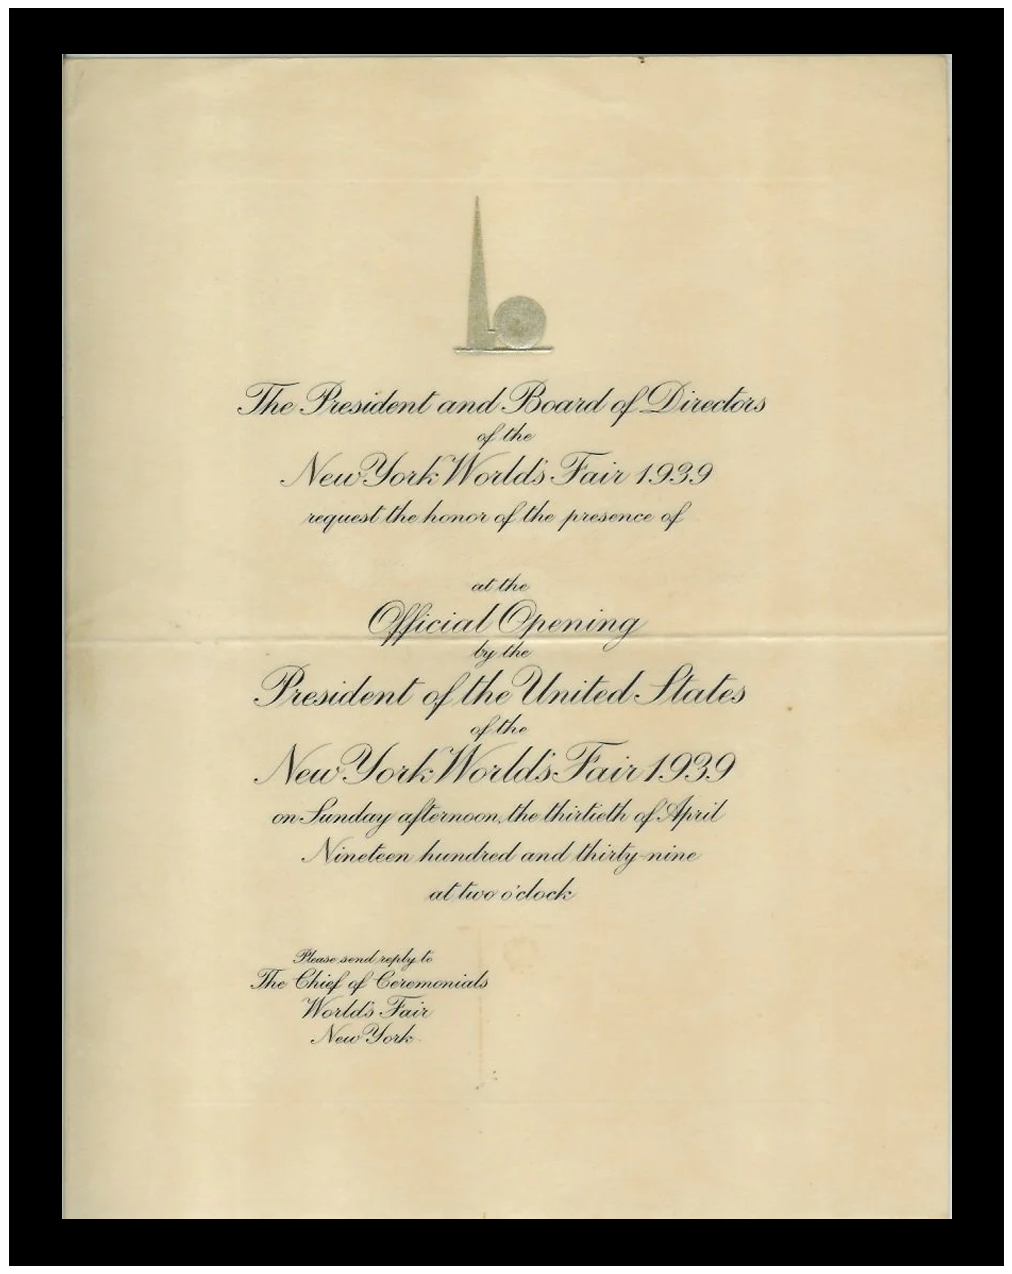 The President and Board of Directors
of the
New York World's Fair 1939
request the honor of the presence of
at the
Official Opening
by the
President of the United States
of the
New York World's Fair 1939
on Sunday afternoon, the thirtieth of April
Nineteen hundred and thirty-nine
at two o'clock
Please send reply to
The Chief of Ceremonials
World's Fair
New York